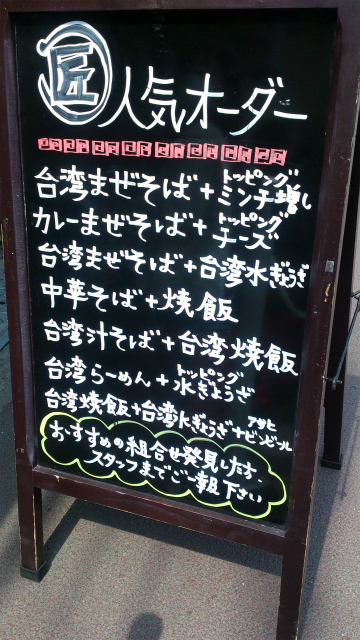 匠 人気オーダー
台湾まぜそば + トッピング ミンチ増し
カレーまぜそば + トッピング チーズ
台湾まぜそば + 台湾水ぎょうざ
中華そば + 焼飯
台湾汁そば + 台湾焼飯
台湾らーめん + トッピング 水ぎょうざ
台湾焼飯 + 台湾水ぎょうざ + アサヒ ビンビール
おすすめの組合せ発見したら、
スタッフまでご一報下さい